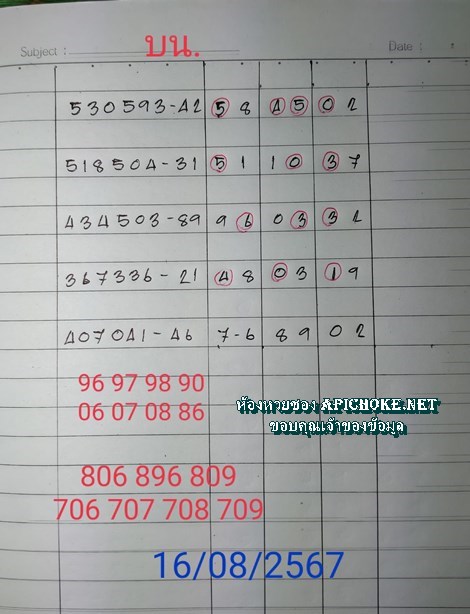 บน.
Subject :
Date :
530593-42 58 45 02
518504-31 51 10 37
434503-89 96 03 32
367336-21 48 03 19
407041-46 7-6 89 02
96 97 98 90
06 07 08 86
ห้องหวยซอง APICHOKE.NET
ขอบคุณเจ้าของข้อมูล
806 896 809
706 707 708 709
16/08/2567